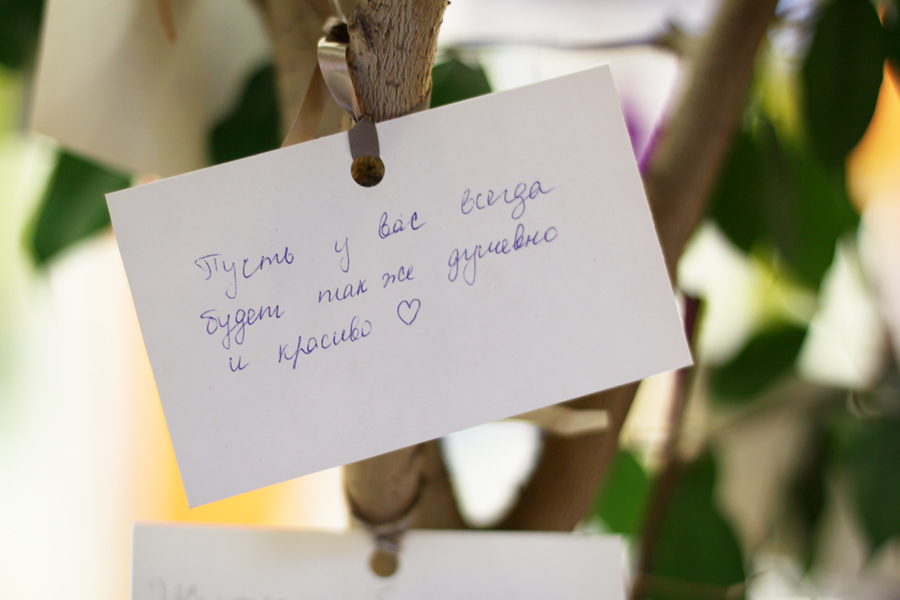 Пусть у вас всегда
будет так же душевно
и красиво ♡